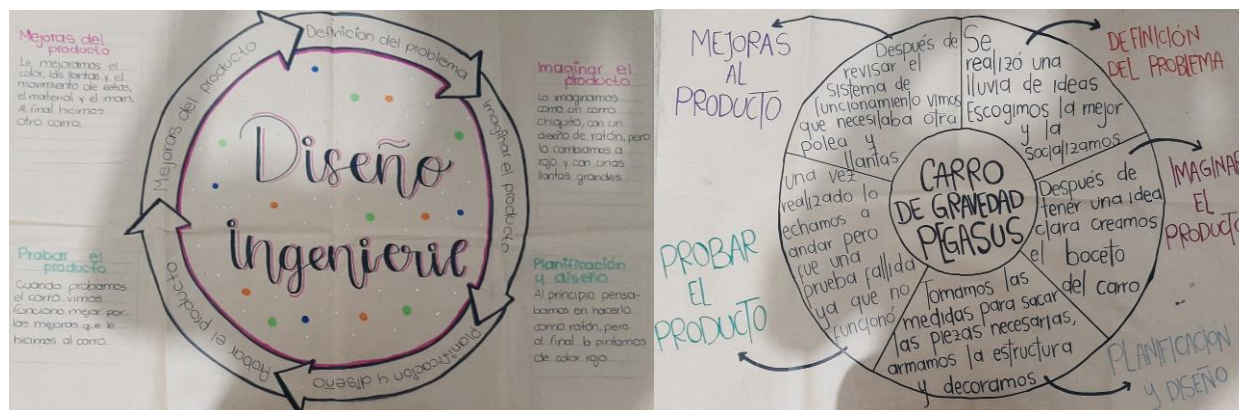 Mejoras del
producto
Le mejoramos el
color, las llantas y el
movimiento de estas,
el material y el iman.
Al final hicimos
otro carro.
Probar el
producto
Cuando probamos
el carro vimos
funciono mejor por
las mejoras que le
hicimos al carro.
Definición del problema
Imaginar el producto
Planificación y diseño
Probar el producto
Mejoras del producto
Diseño
ingenieril
Imaginar el
producto
Lo imaginamos
como un carro
chiquito, con un
diseño de ratón, pero
lo cambiamos a
rojo y con unas
llantas grandes.
Planificación
y diseño
Al principio pensa-
bamos en hacerlo
como ratón, pero
al final lo pintamos
de color rojo
MEJORAS
AL
PRODUCTO
Después de
revisar el
sistema de
funcionamiento vimos
que necesitaba otra
polea y
llantas
Se
realizó una
lluvia de ideas
Escogimos la mejor
y la
socializamos
DEFINICIÓN
DEL PROBLEMA
CARRO
DE GRAVEDAD
PEGASUS
Después de
tener una idea
clara creamos
el boceto
del carro
IMAGINAR
EL
PRODUCTO
Tomamos las
medidas para sacar
las piezas necesarias,
armamos la estructura
y decoramos
PLANIFICACIÓN
y DISEÑO
una vez
realizado lo
echamos a
andar pero
fue una
prueba fallida
ya que no
funcionó
PROBAR
EL
PRODUCTO